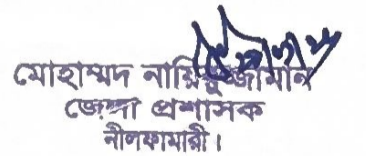 মোহাম্মদ নায়িরুজ্জামান
জেলা প্রশাসক
নীলফামারী।